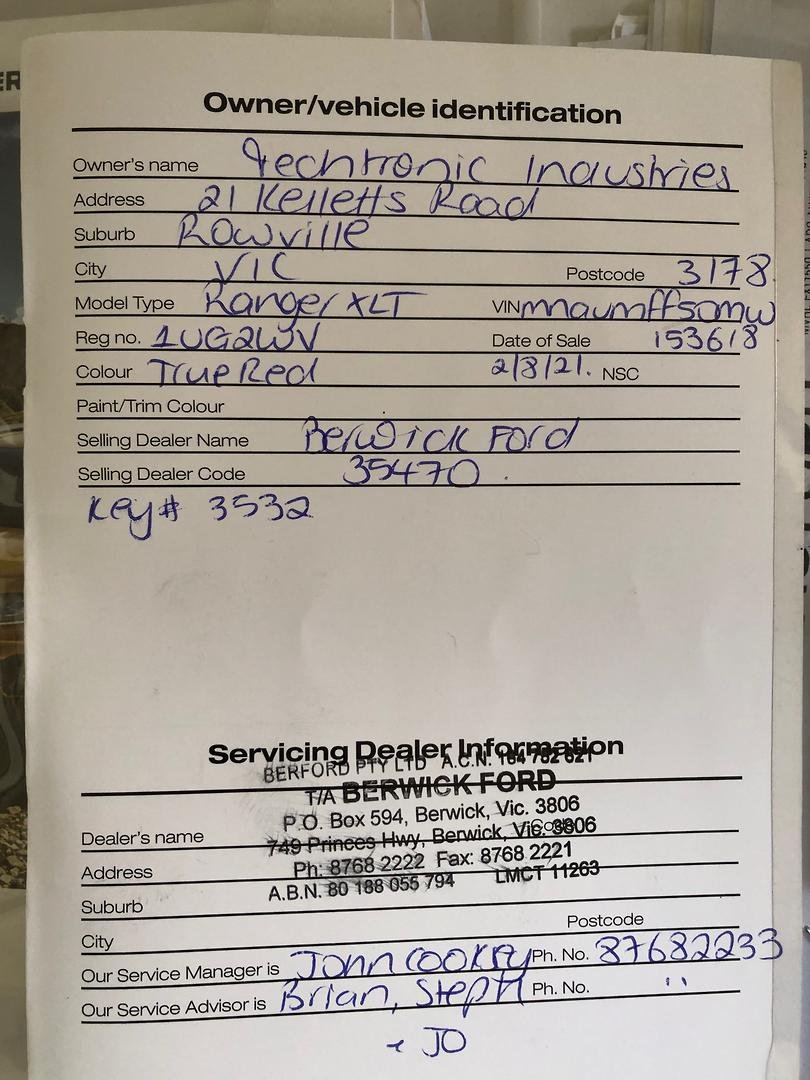 Owner/vehicle identification
Owner's name Techtronic Industries
Address 21 Kelletts Road
Suburb Rowville
City VIC Postcode 3178
Model Type Ranger XLT VIN mnaumffsomw
Reg no. 1UG2WV Date of Sale 153618
Colour True Red 2/8/21. NSC
Paint/Trim Colour
Selling Dealer Name Berwick Ford
Selling Dealer Code 35470.
Key# 3532
Servicing Dealer Information
BERFORD PTY LTD A.C.N. 164 752 821
T/A BERWICK FORD
P.O. Box 594, Berwick, Vic. 3806
Dealer's name 749 Princes Hwy, Berwick, Vic. 3806
Address Ph: 8768 2222 Fax: 8768 2221
A.B.N. 80 188 055 794 LMCT 11263
Suburb
City Postcode
Our Service Manager is John Ph. No. 87682233
Our Service Advisor is Brian, Steph Ph. No. "
+ JO